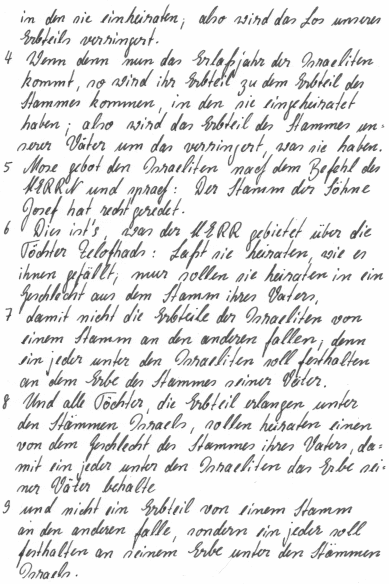 in den sie einheiraten; also wird das Los unseres
Erbteils verringert.
4 Wenn denn nun das Erlaßjahr der Israeliten
kommt, so wird ihr Erbteil zu dem Erbteil des
Stammes kommen, in den sie eingeheiratet
haben; also wird das Erbteil des Stammes un-
serer Väter um das verringert, was sie haben.
5 Mose gebot den Israeliten nach dem Befehl des
HERRN und sprach: Der Stamm der Söhne
Josef hat recht geredet.
6 Dies ist's, was der HERR gebietet über die
Töchter Zelofhads: Laßt sie heiraten, wie es
ihnen gefällt; nur sollen sie heiraten in ein
Geschlecht aus dem Stamm ihres Vaters,
7 damit nicht die Erbteile der Israeliten von
einem Stamm an den anderen fallen; denn
ein jeder unter den Israeliten soll festhalten
an dem Erbe des Stammes seiner Väter.
8 Und alle Töchter, die Erbteil erlangen unter
den Stämmen Israels, sollen heiraten einen
von dem Geschlecht des Stammes ihres Vaters, da-
mit ein jeder unter den Israeliten das Erbe sei-
ner Väter behalte
9 und nicht ein Erbteil von einem Stamm
an den anderen falle, sondern ein jeder soll
festhalten an seinem Erbe unter den Stämmen
Israels.